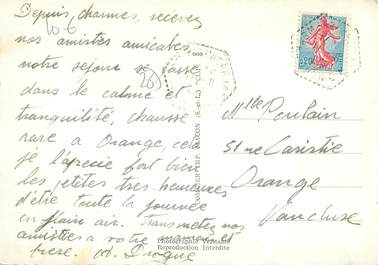 Depuis charmes, recevez
nos amitiés amicales,
notre sejour se passe
dans le calme et
tranquilité, chausse
rare a Orange, cela
je l'apecie fort bien
les petites tres heureuses
d'être toute la journée
en plein air. Transmetez nos
amitiées a votre maman et
frere.
Mlle Poulain
51 rue Caristie
Orange
Vaucluse
COMBIER IMP. MACON (S.-et-L.)
Photographie Véritable
Reproduction Interdite